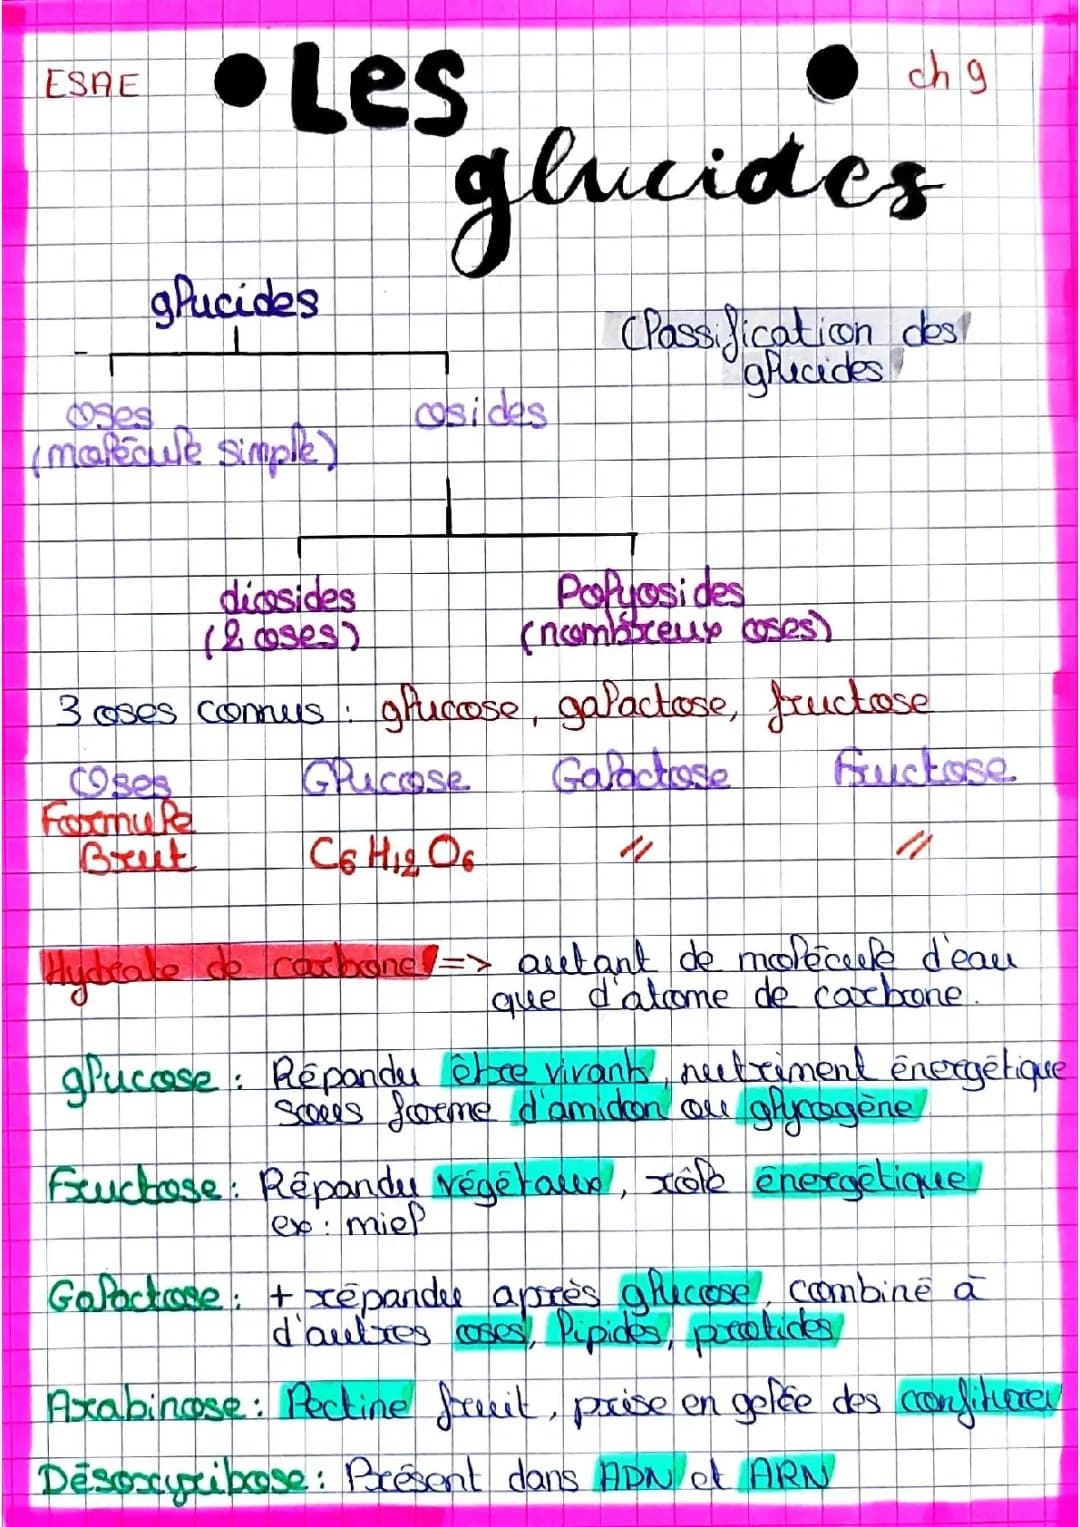 ESAE
•Les
• ch 9
glucides
glucides
Classification des
glucides
oses
(molécule simple)
osides
diosides
(2 oses)
Polyosides
(nombreux oses)
3 oses connus : glucose, galactose, fructose
Oses Glucose Galactose Fructose
Formule
Brut C6 H12 O6 // //
Hydrate de carbone => autant de molécule d'eau
que d'atome de carbone.
glucose : Répandu être vivants, nutriment énergétique
sous forme d'amidon ou glycogène
Fructose : Répandu végétaux, rôle énergétique
ex : miel
Galactose : + répandu après glucose, combiné à
d'autres oses, lipides, protides
Arabinose : Pectine fruit, prise en gelée des confitures
Désoxyribose : Présent dans ADN et ARN